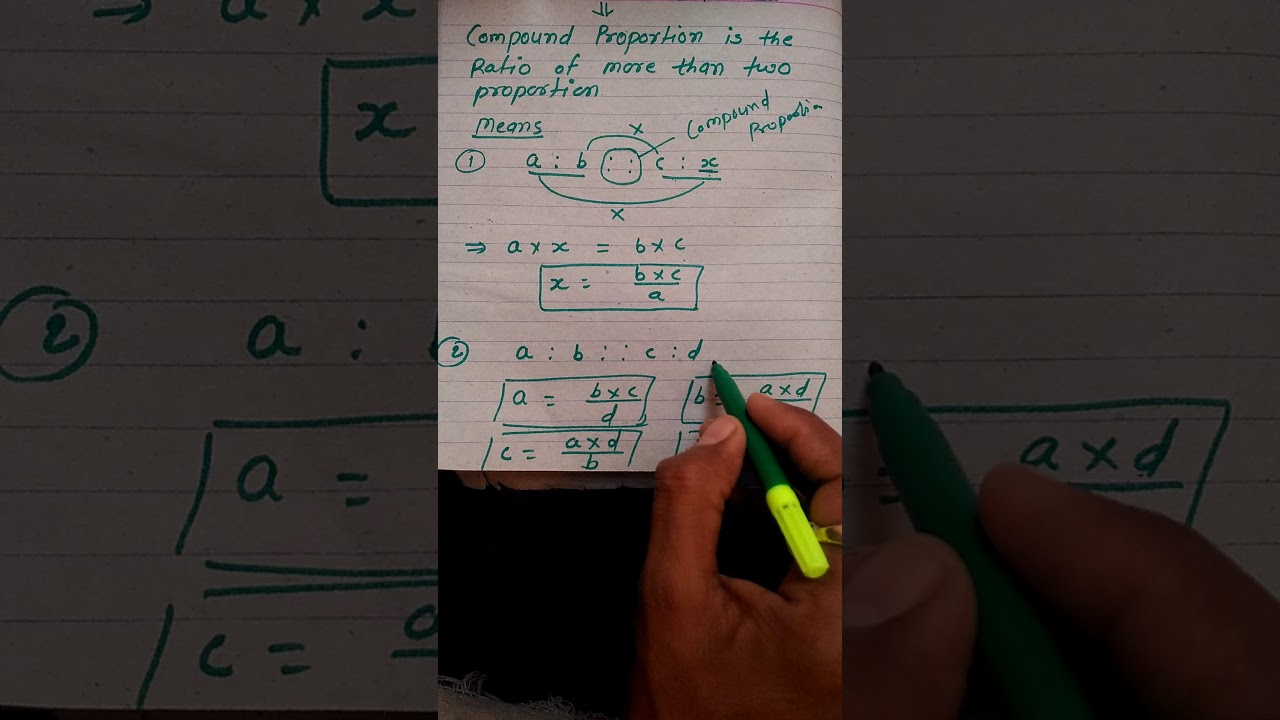 ⇓
Compound Proportion is the
Ratio of more than two
proportion
Means
Compound
Proportion
×
① a : b :: c : x
×
⇒ a × x = b × c
x = b × c / a
② a : b :: c : d
a = b × c / d
b = a × d
c = a × d / b